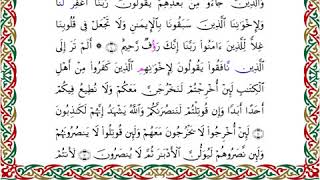 وَٱلَّذِينَ جَآءُو مِنۢ بَعۡدِهِمۡ يَقُولُونَ رَبَّنَا ٱغۡفِرۡ لَنَا
وَلِإِخۡوَٰنِنَا ٱلَّذِينَ سَبَقُونَا بِٱلۡإِيمَٰنِ وَلَا تَجۡعَلۡ فِي قُلُوبِنَا
غِلّٗا لِّلَّذِينَ ءَامَنُواْ رَبَّنَآ إِنَّكَ رَءُوفٞ رَّحِيمٌ ۝ أَلَمۡ تَرَ إِلَى
ٱلَّذِينَ نَافَقُواْ يَقُولُونَ لِإِخۡوَٰنِهِمُ ٱلَّذِينَ كَفَرُواْ مِنۡ أَهۡلِ
ٱلۡكِتَٰبِ لَئِنۡ أُخۡرِجۡتُمۡ لَنَخۡرُجَنَّ مَعَكُمۡ وَلَا نُطِيعُ فِيكُمۡ
أَحَدًا أَبَدٗا وَإِن قُوتِلۡتُمۡ لَنَنصُرَنَّكُمۡ وَٱللَّهُ يَشۡهَدُ إِنَّهُمۡ لَكَٰذِبُونَ
۝ لَئِنۡ أُخۡرِجُواْ لَا يَخۡرُجُونَ مَعَهُمۡ وَلَئِن قُوتِلُواْ لَا يَنصُرُونَهُمۡ
وَلَئِن نَّصَرُوهُمۡ لَيُوَلُّنَّ ٱلۡأَدۡبَٰرَ ثُمَّ لَا يُنصَرُونَ ۝ لَأَنتُمۡ